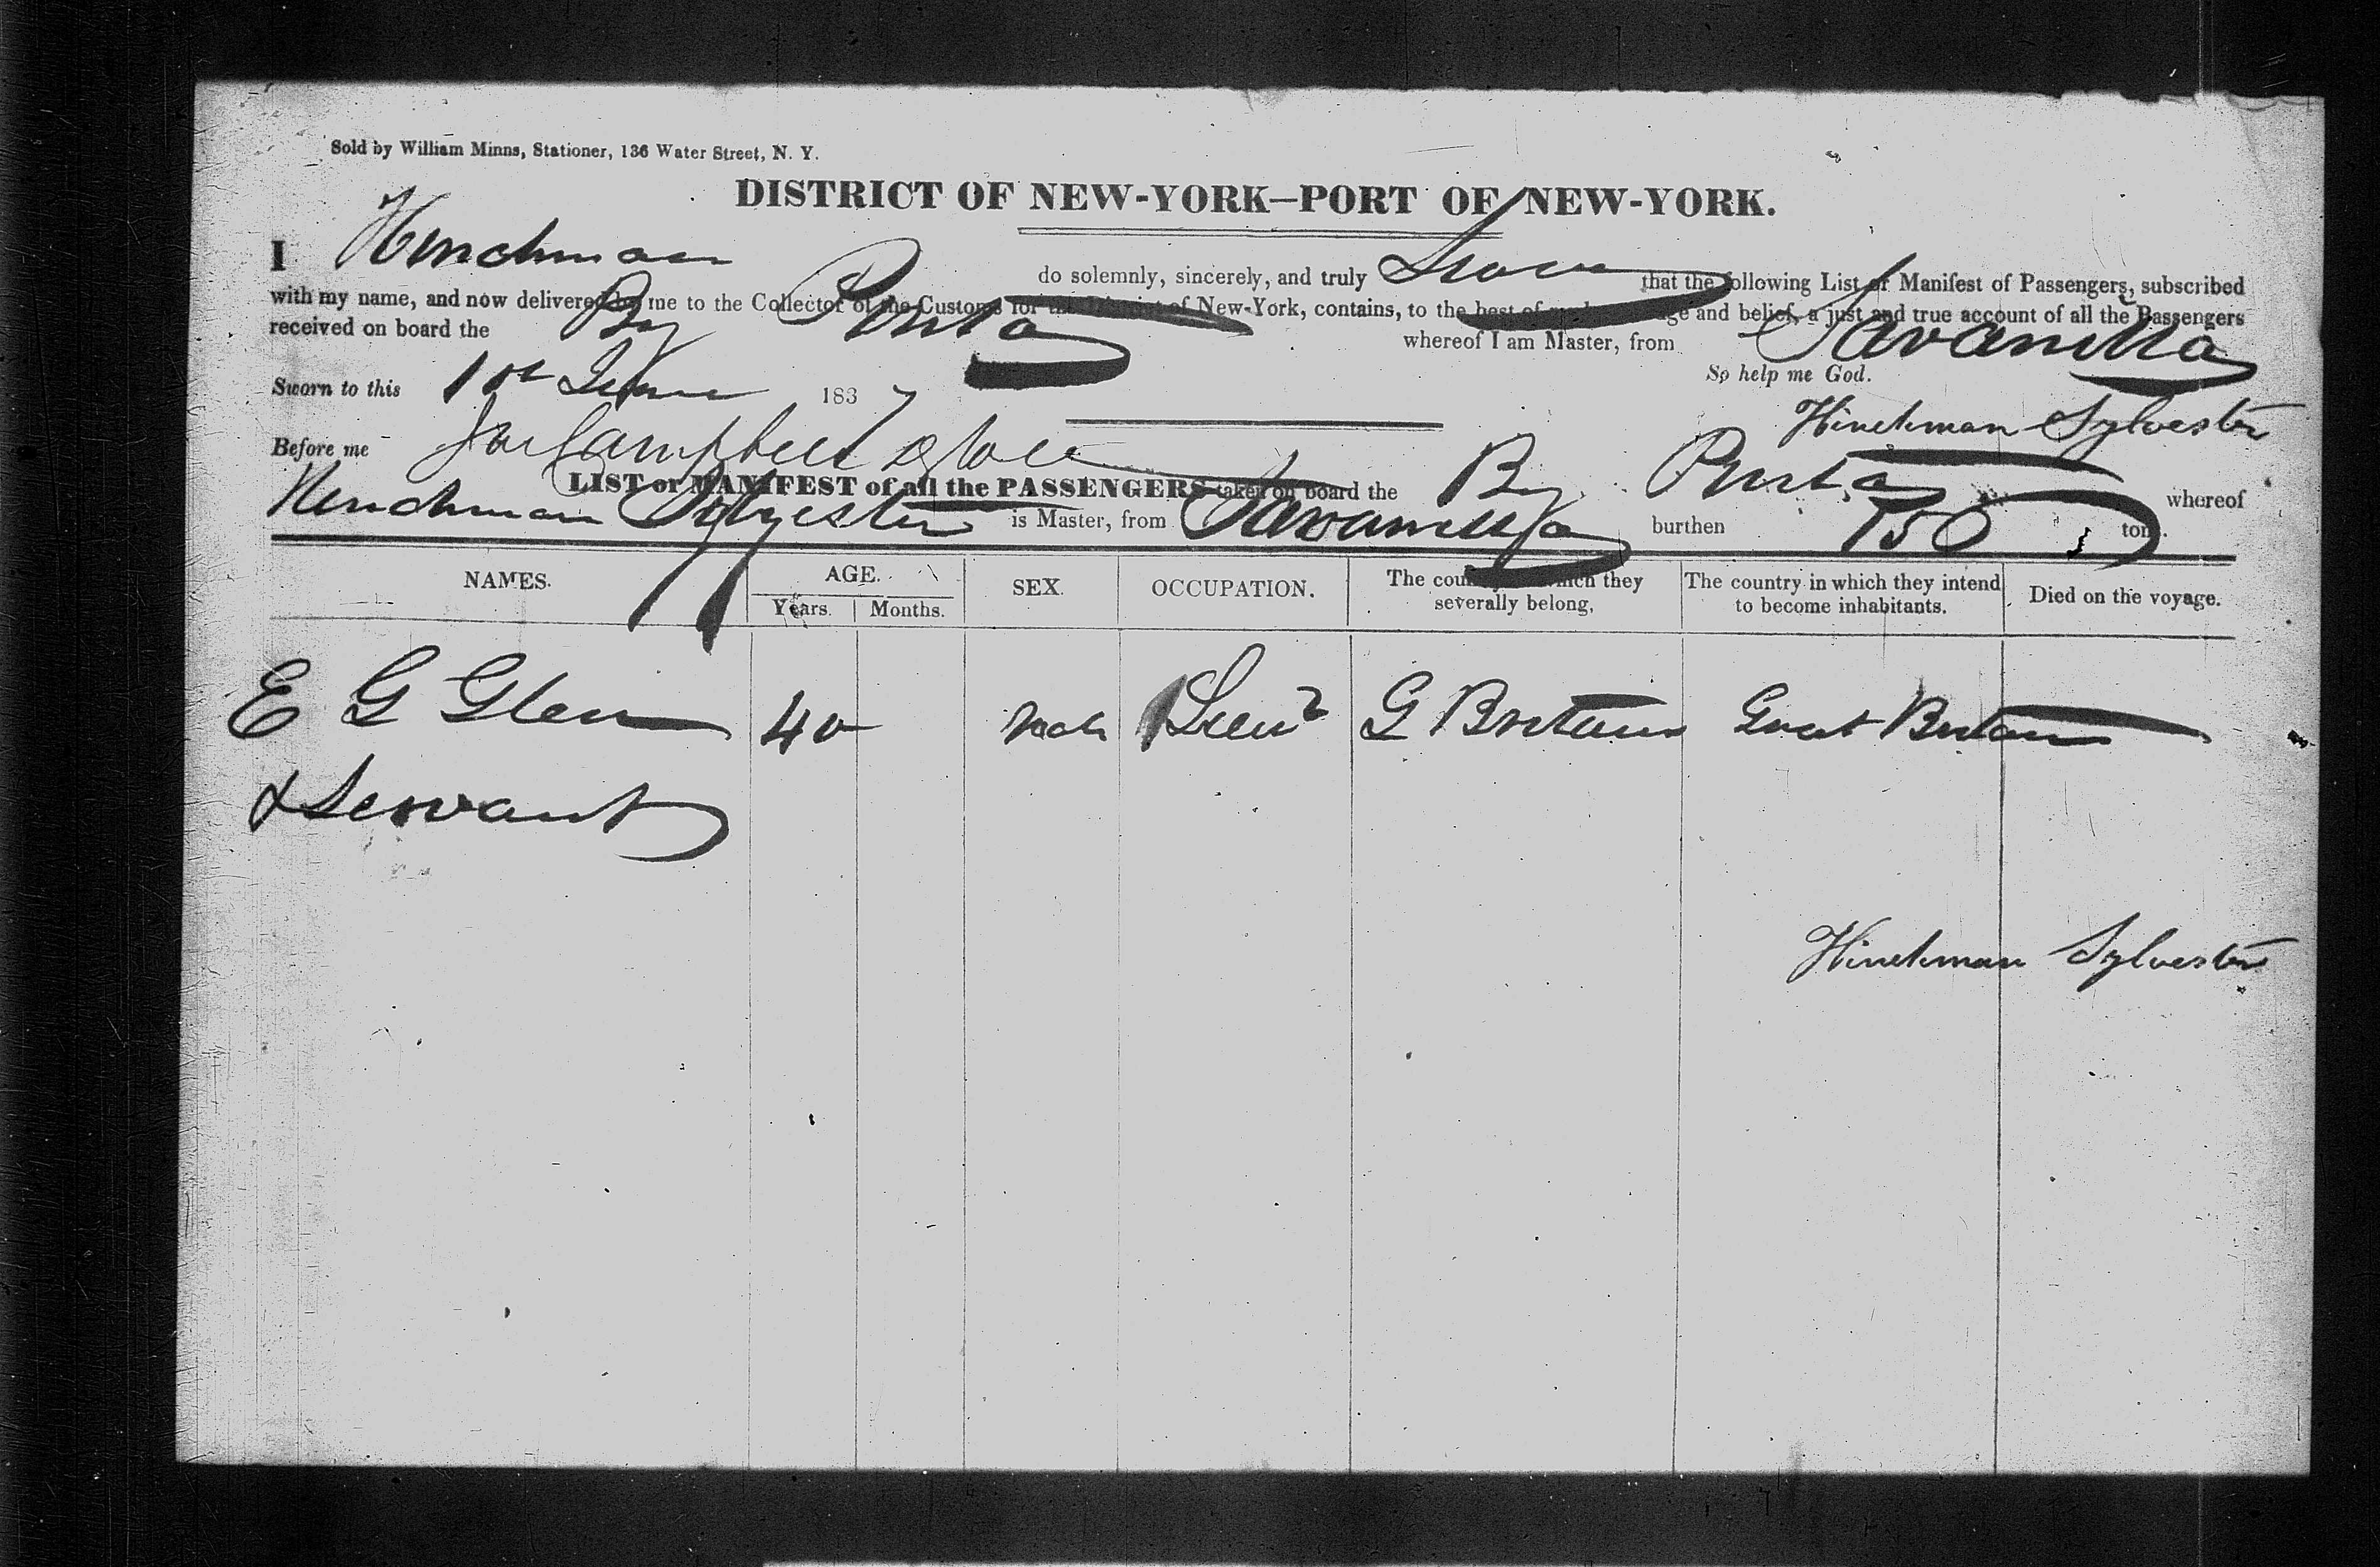 Sold by William Minns, Stationer, 136 Water Street, N. Y.
DISTRICT OF NEW-YORK—PORT OF NEW-YORK.
I Henchman do solemnly, sincerely, and truly Swear that the following List or Manifest of Passengers, subscribed
with my name, and now delivered by me to the Collector of the Customs for the District of New-York, contains, to the best of my knowledge and belief, a just and true account of all the Passengers
received on board the Bg Punta whereof I am Master, from Savanilla
So help me God.
Sworn to this 1st June 1837
Hinchman Sylvester
Before me Campbell
LIST or MANIFEST of all the PASSENGERS taken on board the Bg Punta whereof
Henchman Sylvester is Master, from Savanilla burthen 150 tons.
NAMES. AGE. SEX. OCCUPATION. The country to which they severally belong, The country in which they intend to become inhabitants. Died on the voyage.
Years. Months.
E G Glen 40 Male Lieut G Britain Great Britain
& Servant
Hinchman Sylvester